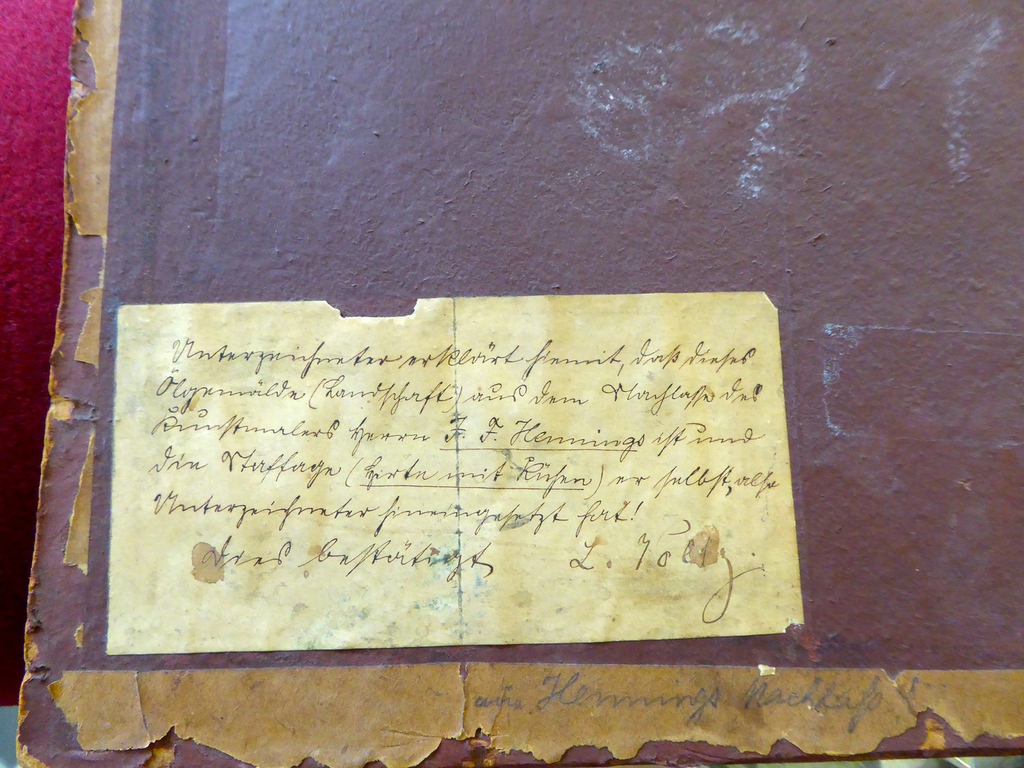 Unterzeichneter erklärt hiemit, daß dieses
Ölgemälde (Landschaft) aus dem Nachlasse des
Kunstmalers Herrn F. F. Hennings ist und
die Staffage (Hirte mit Kühen) er selbst, also
Unterzeichneter hineingesetzt hat!
Dies bestätigt L. Voltz.
aus Hennings Nachlaß